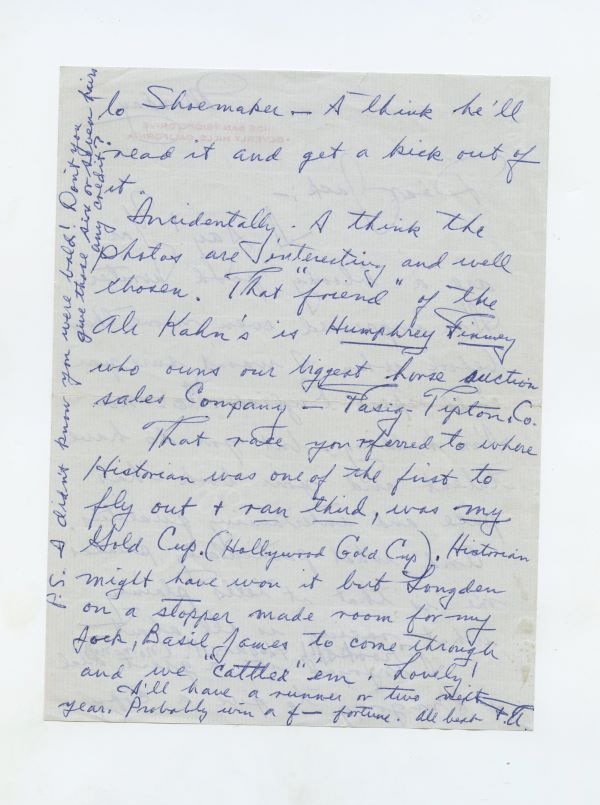 to Shoemaker — I think he'll
read it and get a kick out of
it.
Incidentally. I think the
photos are interesting and well
chosen. That "friend" of the
Ali Kahn's is Humphrey Finney
who owns our biggest horse auction
sales Company — Fasig-Tipton, Co.
That race you referred to where
Historian was one of the first to
fly out + ran third, was my
Gold Cup. (Hollywood Gold Cup). Historian
might have won it but Longden
on a stopper made room for my
Jock, Basil James to come through
and we "cattled" 'em. Lovely!
I'll have a runner or two next
year. Probably win a f— fortune. All best
P.S. I didn't know you were bald! Don't you
give those six or seven hairs
any credit?